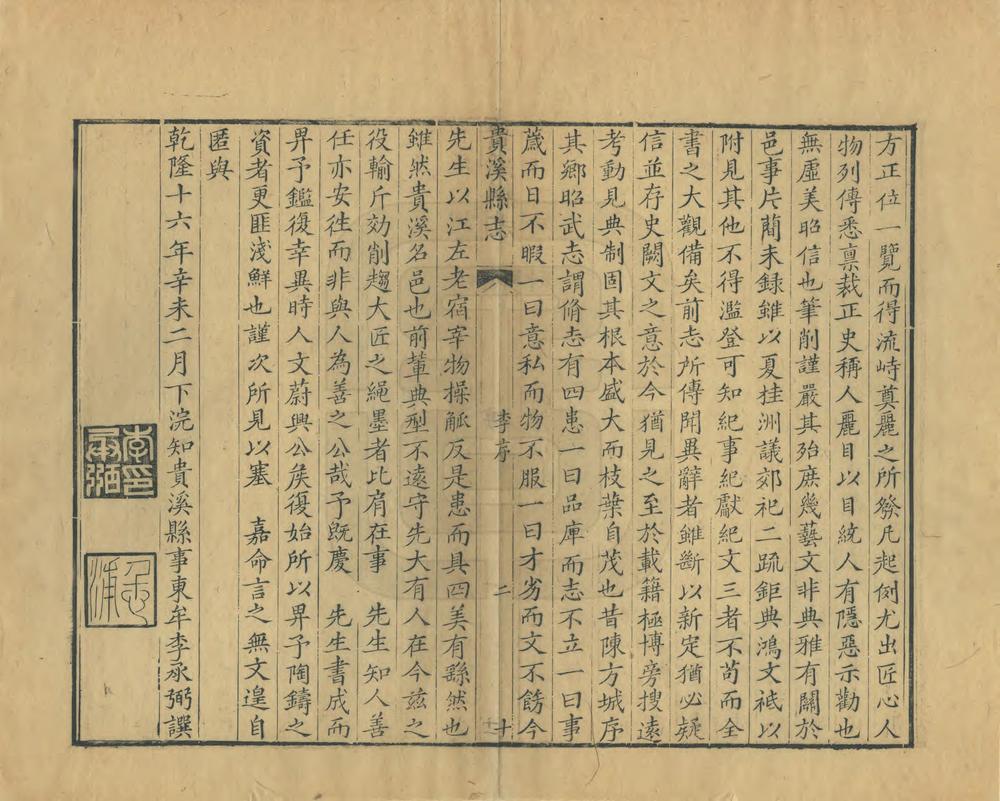 方正位一覽而得流峙奠麗之所發凡起例尤出匠心人
物列傳悉稟裁正史稱人麗目以目統人有隱惡示勸也
無虛美昭信也筆削謹嚴其殆庶幾藝文非典雅有關於
邑事片蕳未録雖以夏桂洲議郊祀二疏鉅典鴻文祗以
附見其他不得濫登可知紀事紀獻紀文三者不苟而全
書之大觀備矣前志所傳聞異辭者雖斷以新定猶必疑
信並存史闕文之意於今猶見之至於載籍極博旁搜遠
考動見典制固其根本盛大而枝葉自茂也昔陳方城序
其鄉昭武志謂脩志有四患一曰品庫而志不立一曰事
蕆而日不暇一曰意私而物不服一曰才劣而文不餝今
貴溪縣志
李序
二
十
先生以江左老宿宰物操觚反是患而具四美有繇然也
雖然貴溪名邑也前輩典型不遠守先大有人在今兹之
役輸斤効削趨大匠之繩墨者比肩在事 先生知人善
任亦安徃而非與人為善之公哉予既慶 先生書成而
畀予鑑復幸異時人文蔚興公矦復始所以畀予陶鑄之
資者更匪淺鮮也謹次所見以塞 嘉命言之無文遑自
匿與
乾隆十六年辛未二月下浣知貴溪縣事東牟李承弼譔
李承弼印